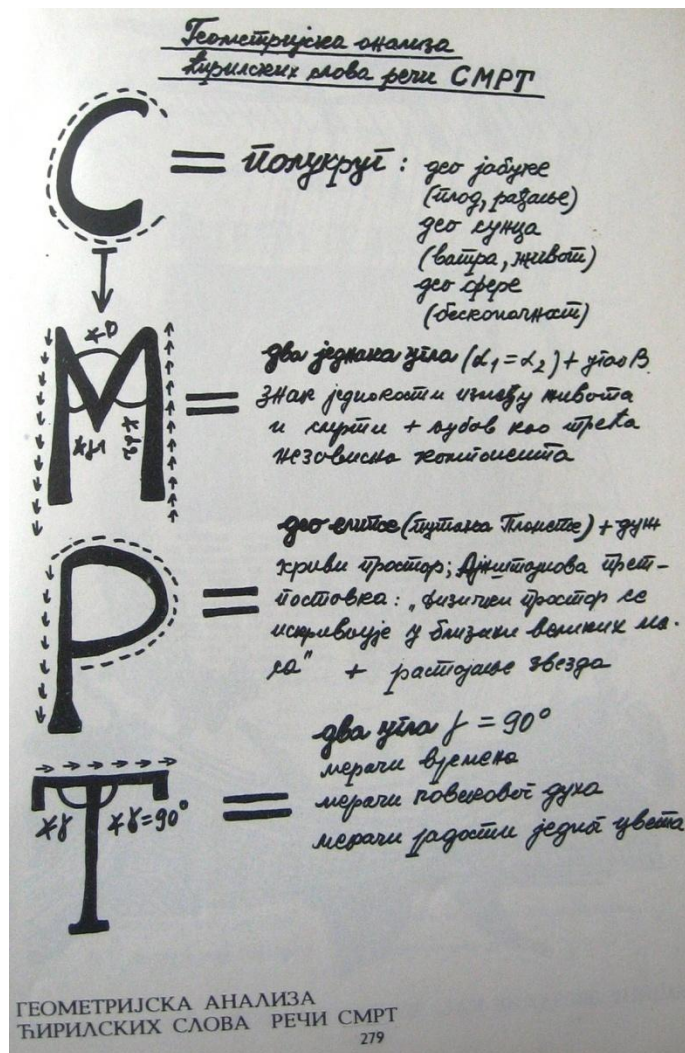 Геометријска анализа
ћирилских слова речи СМРТ
С = полукруг : део јабуке
(плод, рађање)
део сунца
(ватра, живот)
део сфере
(бесконачност)
М = два једнака угла (α₁=α₂) + угао β.
знак једнакости између живота
и смрти + љубав као трећа
независна компонента
Р = део елипсе (путања Планете) + дуж
криви простор; Ајнштајнова прет-
поставка: „физички простор се
искривљује у близини великих ма-
са" + растојање звезда
Т = два угла γ = 90°
мерачи времена
мерачи човековог духа
мерачи радости једног цвета
∢β
∢α1
∢α2
∢γ ∢γ=90°
ГЕОМЕТРИЈСКА АНАЛИЗА
ЋИРИЛСКИХ СЛОВА РЕЧИ СМРТ
279